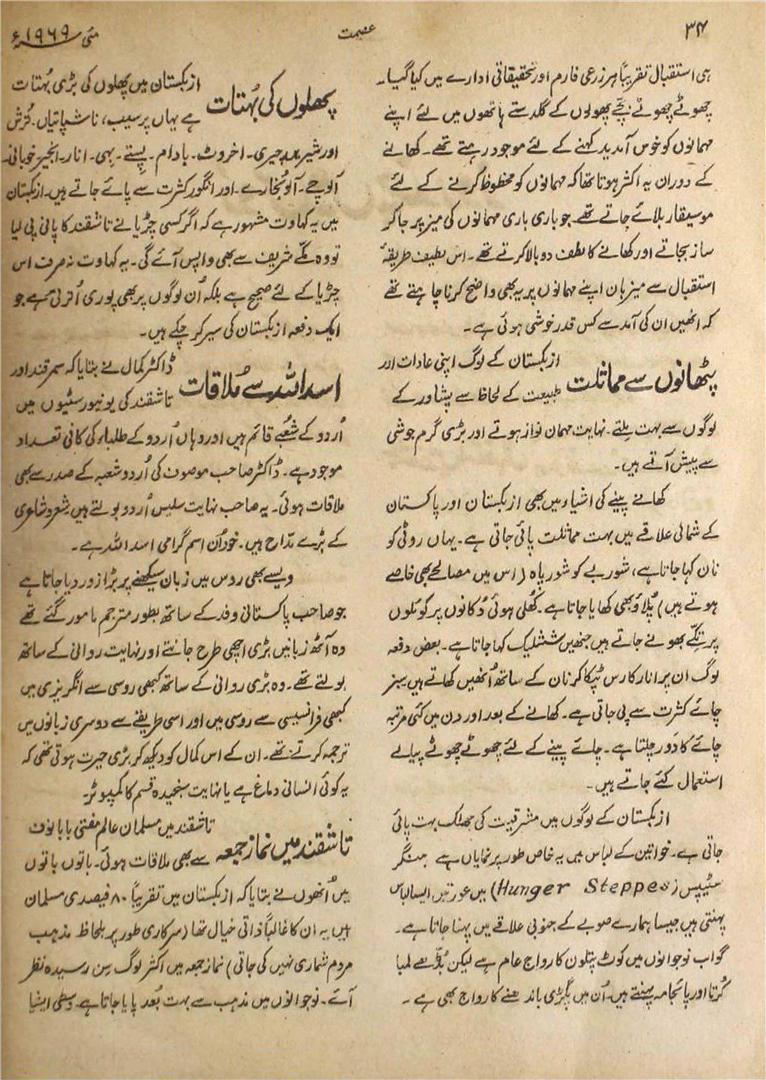 ۳۴
عصمت
مئی ۱۹۶۹ء
ہی استقبال تقریباً ہر زرعی فارم اور تحقیقاتی ادارے میں کیا گیا۔
چھوٹے چھوٹے بچے پھولوں کے گلدستے ہاتھوں میں لئے اپنے
مہمانوں کو خوش آمدید کہنے کے لئے موجود رہتے تھے۔ کھانے
کے دوران یہ اکثر ہوتا تھا کہ مہمانوں کو محظوظ کرنے کے لئے
موسیقار بلائے جاتے تھے۔ جو باری باری مہمانوں کی میز پر جا کر
ساز بجاتے اور کھانے کا لطف دوبالا کرتے تھے۔ اس لطیف طریقۂ
استقبال سے میزبان اپنے مہمانوں پر یہ بھی واضح کرنا چاہتے تھے
کہ انھیں ان کی آمد سے کس قدر خوشی ہوئی ہے۔
پٹھانوں سے مماثلت
ازبکستان کے لوگ اپنی عادات اور
طبیعت کے لحاظ سے پشاور کے
لوگوں سے بہت ملتے۔ نہایت مہمان نواز ہوتے اور بڑی گرم جوشی
سے پیش آتے ہیں۔
کھانے پینے کی اشیاء میں بھی ازبکستان اور پاکستان
کے شمالی علاقے میں بہت مماثلت پائی جاتی ہے۔ یہاں روٹی کو
نان کہا جاتا ہے، شوربے کو شورپاہ (اس میں مصالحے بھی خاصے
ہوتے ہیں) پُلاؤ بھی کھایا جاتا ہے۔ کھلی ہوئی دُکانوں پر کوئلوں
پر تکّے بھونے جاتے ہیں جنھیں ششلیک کہا جاتا ہے۔ بعض دفعہ
لوگ ان پر انار کا رس ٹپکا کر نان کے ساتھ اُنھیں کھاتے ہیں سبز
چائے کثرت سے پی جاتی ہے۔ کھانے کے بعد اور دن میں کئی مرتبہ
چائے کا دَور چلتا ہے۔ چائے پینے کے لئے چھوٹے چھوٹے پیالے
استعمال کئے جاتے ہیں۔
ازبکستان کے لوگوں میں مشرقیت کی جھلک بہت پائی
جاتی ہے۔ خواتین کے لباس میں یہ خاص طور پر نمایاں ہے ہنگر
سٹیپس (Hunger Steppes) میں عورتیں ایسا لباس
پہنتی ہیں جیسا ہمارے صوبے کے جنوبی علاقے میں پہنا جاتا ہے۔
گو اب نوجوانوں میں کوٹ پتلون کا رواج عام ہے لیکن بڈّھے لمبا
کُرتا اور پائجامہ پہنتے ہیں۔ اُن میں پگڑی باندھنے کا رواج بھی ہے۔
پھلوں کی بُہتات
ازبکستان میں پھلوں کی بڑی بُہتات
ہے یہاں پر سیب، ناشپاتیاں،
اور شیریں چیری۔ اخروٹ۔ بادام۔ پستے۔ بہی۔ انار۔ انجیر خوبانی۔
آلوچے۔ آلوبخارے۔ اور انگور کثرت سے پائے جاتے ہیں۔ ازبکستان
میں یہ کہاوت مشہور ہے کہ اگر کسی چڑیا نے تاشقند کا پانی پی لیا
تو وہ مکّے شریف سے بھی واپس آئے گی۔ یہ کہاوت نہ صرف اس
چڑیا کے لئے صحیح ہے بلکہ اُن لوگوں پر بھی پوری اُترتی ہے جو
ایک دفعہ ازبکستان کی سیر کر چکے ہیں۔
اسد اللہ سے مُلاقات
ڈاکٹر کمال نے بتایا کہ سمرقند اور
تاشقند کی یونیورسٹیوں میں
اُردو کے شعبے قائم ہیں اور وہاں اُردو کے طلباء کی کافی تعداد
موجود ہے۔ ڈاکٹر صاحب موصوف کی اُردو شعبہ کے صدر سے بھی
ملاقات ہوئی۔ یہ صاحب نہایت سلیس اُردو بولتے ہیں شعر و شاعری
کے بڑے مدّاح ہیں۔ خود اُن اسم گرامی اسد اللہ ہے۔
ویسے بھی روس میں زبان سیکھنے پر بڑا زور دیا جاتا ہے
جو صاحب پاکستانی وفد کے ساتھ بطور مترجم مامور کئے گئے تھے
وہ آٹھ زبانیں بڑی اچھی طرح جانتے اور نہایت روانی کے ساتھ
بولتے تھے۔ وہ بڑی روانی کے ساتھ کبھی روسی سے انگریزی میں
کبھی فرانسیسی سے روسی میں اور اسی طریقے سے دوسری زبانوں میں
ترجمہ کرتے تھے۔ ان کے اس کمال کو دیکھ کر بڑی حیرت ہوتی تھی کہ
یہ کوئی انسانی دماغ ہے یا نہایت سنجیدہ قسم کا کمپیوٹر۔
تاشقند میں نماز جمعہ
تاشقند میں مسلمان عالم مفتی بابا نوف
سے بھی ملاقات ہوئی۔ باتوں باتوں
میں اُنھوں نے بتایا کہ ازبکستان میں تقریباً ۸۰ فیصدی مسلمان
ہیں یہ ان کا غالباً ذاتی خیال تھا (سرکاری طور پر بلحاظ مذہب
مردم شماری نہیں کی جاتی) نماز جمعہ میں اکثر لوگ سِن رسیدہ نظر
آئے۔ نوجوانوں میں مذہب سے بہت بُعد پایا جاتا ہے۔ وسطی ایشیا